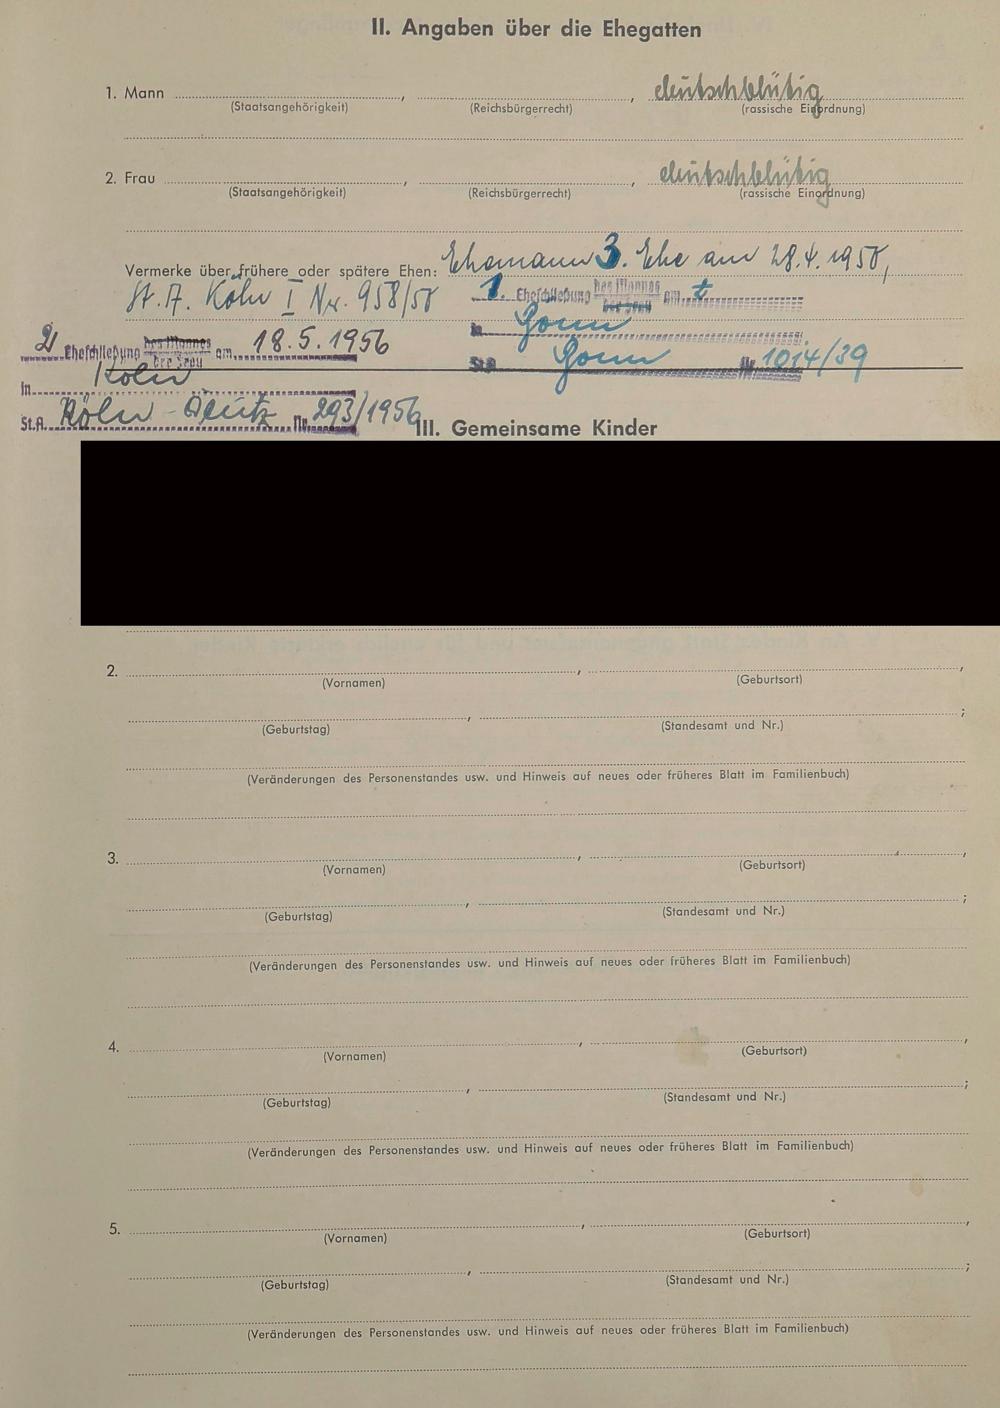 II. Angaben über die Ehegatten
1. Mann , , deutschblütig
(Staatsangehörigkeit) (Reichsbürgerrecht) (rassische Einordnung)
2. Frau , , deutschblütig
(Staatsangehörigkeit) (Reichsbürgerrecht) (rassische Einordnung)
Vermerke über frühere oder spätere Ehen: Ehemann 3. Ehe am 28.4.1958,
St. A. Köln I Nr. 958/58
1. Eheschließung des Mannes der Frau am
in
St.A. Nr. 1014/39
2 Eheschließung des Mannes der Frau am 18.5.1956
in Köln
St.A. Köln-Deutz Nr. 293/1956
III. Gemeinsame Kinder
2. , ,
(Vornamen) (Geburtsort)
, ;
(Geburtstag) (Standesamt und Nr.)
(Veränderungen des Personenstandes usw. und Hinweis auf neues oder früheres Blatt im Familienbuch)
3. , ,
(Vornamen) (Geburtsort)
, ;
(Geburtstag) (Standesamt und Nr.)
(Veränderungen des Personenstandes usw. und Hinweis auf neues oder früheres Blatt im Familienbuch)
4. , ,
(Vornamen) (Geburtsort)
, ;
(Geburtstag) (Standesamt und Nr.)
(Veränderungen des Personenstandes usw. und Hinweis auf neues oder früheres Blatt im Familienbuch)
5. , ,
(Vornamen) (Geburtsort)
, ;
(Geburtstag) (Standesamt und Nr.)
(Veränderungen des Personenstandes usw. und Hinweis auf neues oder früheres Blatt im Familienbuch)